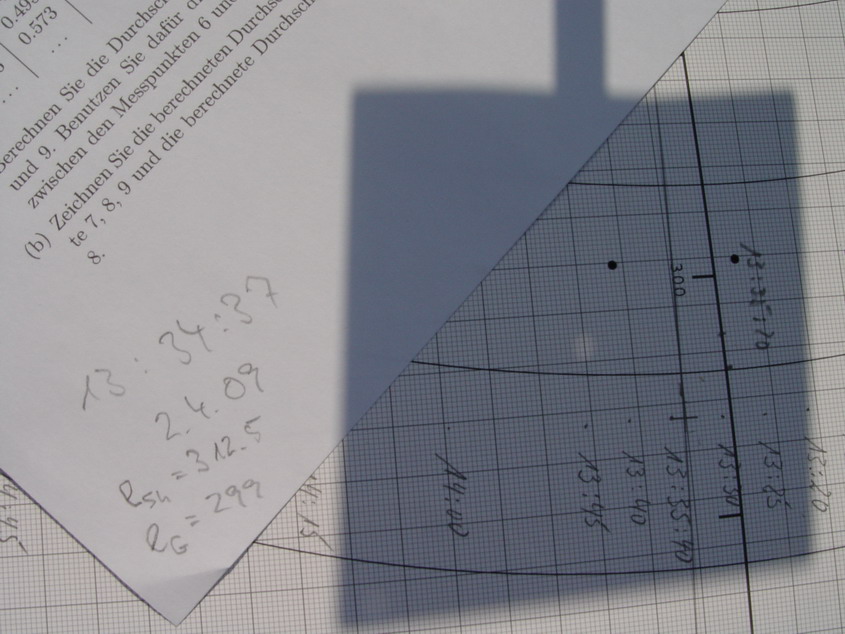 0.573
...
...
erechnen Sie die Durchsc
und 9. Benutzen Sie dafür d
zwischen den Messpunkten 6 un
(b) Zeichnen Sie die berechneten Durchs
te 7, 8, 9 und die berechnete Durchsch
8.
13:34:37
2.4.09
RSh = 312.5
RG = 299
300
13:35:40
13:40
13:45
14:00
13:30
13:25